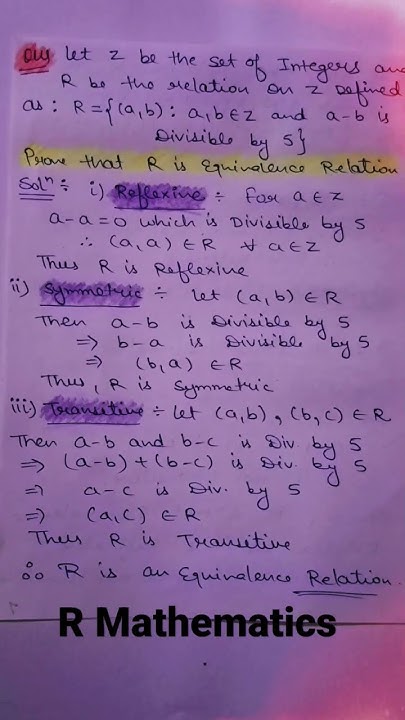 Que Let Z be the set of Integers and
R be the relation on Z Defined
as : R={(a,b) : a,b∈Z and a-b is
Divisible by 5}
Prove that R is Equivalence Relation
Solⁿ ÷ i) Reflexive ÷ for a∈Z
a-a=0 which is Divisible by 5
∴ (a,a) ∈ R ∀ a∈Z
Thus R is Reflexive
ii) Symmetric ÷ let (a,b) ∈ R
Then a-b is Divisible by 5
⇒ b-a is Divisible by 5
⇒ (b,a) ∈ R
Thus, R is Symmetric
iii) Transitive ÷ let (a,b), (b,c) ∈ R
Then a-b and b-c is Div. by 5
⇒ (a-b)+(b-c) is Div. by 5
⇒ a-c is Div. by 5
⇒ (a,c) ∈ R
Thus R is Transitive
∴ R is an Equivalence Relation.
R Mathematics